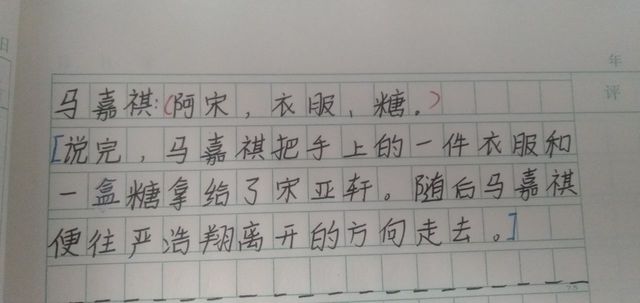 年
日
评
马嘉祺:(阿宋，衣服、糖。)
[说完，马嘉祺把手上的一件衣服和
一盒糖拿给了宋亚轩。随后马嘉祺
便往严浩翔离开的方向走去。]